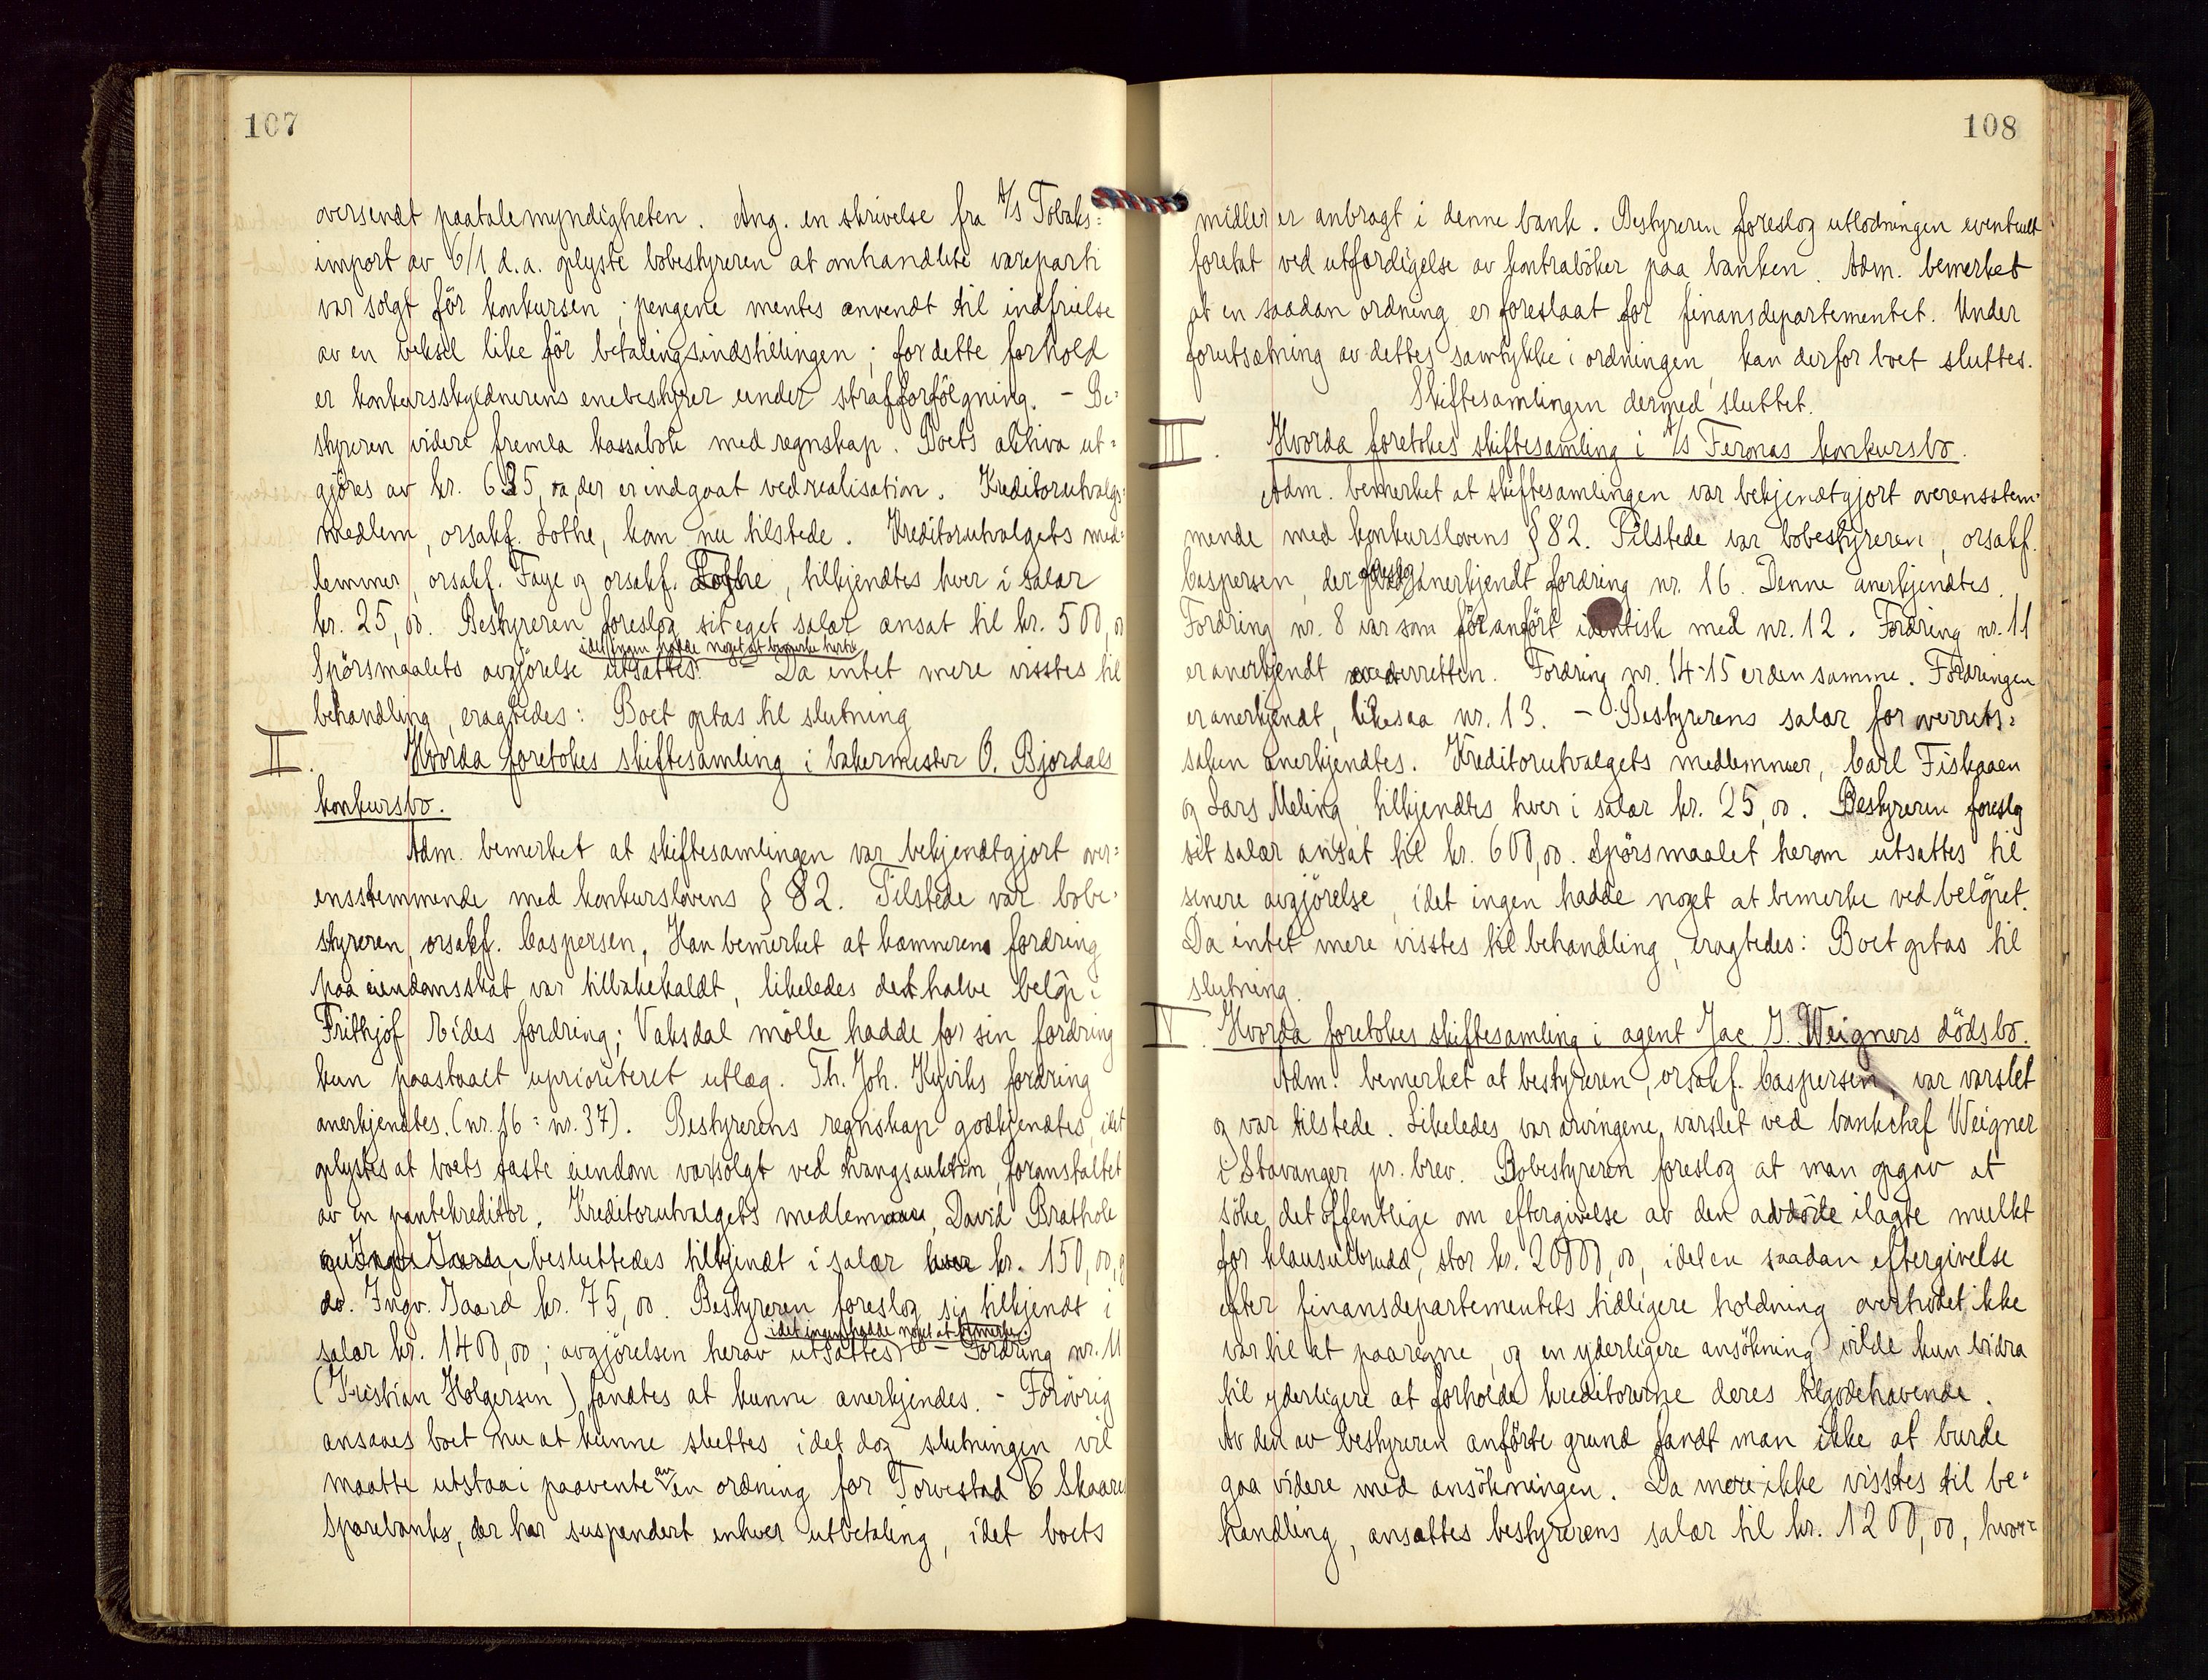 107
oversendt paatalemyndigheten. Ang. en skrivelse fra A/S Tobaks=
import av 6/1 d.a. oplyste bobestyreren at omhandlede vareparti
var solgt før konkursen; pengene mentes anvendt til indfrielse
av en veksel like før betalingsindstillingen; for dette forhold
er konkursskyldnerens enebestyrer under strafforfølgning. - Be=
styreren videre fremla kassabok med regnskap. Boets aktiva ut=
gjøres av kr. 635,00 der er indgaat ved realisation. Kreditorutvalgs=
medlem, orsakf. Lothe, kom nu tilstede. Kreditorutvalgets med=
lemmer, orsakf. Faye og orsakf. Lothe, tilkjendtes hver i salær
kr. 25,00. Bestyreren foreslog sit eget salær ansat til kr. 500,00
idet ingen hadde noget at bemerke hertil
Spørsmaalets avgjørelse utsattes. - Da intet mere visstes til
behandling, eragtedes: Boet optas til slutning
II. Hvorda foretokes skiftesamling i bakermester O. Bjordals
konkursbo.
Adm. bemerket at skiftesamlingen var bekjendtgjort over=
ensstemmende med konkurslovens § 82. Tilstede var bobe=
styreren, orsakf. Caspersen. Han bemerket at kæmnerens fordring
paa eiendomsskat var tilbakekaldt, likeledes det halve beløp i
Frithjof Eides fordring; Vaksdal mølle hadde for sin fordring
kun paastaaet uprioriteret utlæg. Th. Joh. Kyviks fordring
anerkjendtes. (nr. 16 = nr. 37). Bestyrerens regnskap godkjendtes, idet
oplystes at boets faste eiendom var solgt ved tvangsauktion, foranstaltet
av en pantekreditor. Kreditorutvalgets medlem, David Brathole
besluttedes tilkjendt i salær hver kr. 150,00, og
do. Ingv. Gaard kr. 75,00. Bestyreren foreslog sig tilkjendt i
idet ingen hadde noget at bemerke.
salær kr. 1400,00; avgjørelsen herav utsattes - Fordring nr. 11
(Kristian Holgersen) fandtes at kunne anerkjendes. - Forøvrig
ansaaes boet nu at kunne sluttes idet dog slutningen vil
maatte utstaa i paavente av en ordning for Torvestad & Skaare
Sparebank, der har suspendert enhver utbetaling, idet boets
108
midler er anbragt i denne bank. Bestyreren foreslog utlodningen eventuelt
foretat ved utfærdigelse av kontrabøker paa banken. Adm. bemerket
at en saadan ordning er foreslaat for finansdepartementet. Under
forutsætning av dettes samtykke i ordningen, kan derfor boet sluttes.
Skiftesamlingen dermed sluttet.
III. Hvorda foretokes skiftesamling i A/S Fermas konkursbo.
Adm. bemerket at skiftesamlingen var bekjendtgjort overensstem=
mende med konkurslovens § 82. Tilstede var bobestyreren, orsakf.
Caspersen, der foreslog anerkjendt fordring nr. 16. Denne anerkjendtes.
Fordring nr. 8 var som før anført identisk med nr. 12. Fordring nr. 11
er anerkjendt av overretten. Fordring nr. 14-15 er den samme. Fordringen
er anerkjendt, likesaa nr. 13. - Bestyrerens salær for overrets=
saken anerkjendtes. Kreditorutvalgets medlemmer, Carl Fiskaaen
og Lars Meling, tilkjendtes hver i salær kr. 25,00. Bestyreren foreslog
sit salær ansat til kr. 600,00. Spørsmaalet herom utsattes til
senere avgjørelse, idet ingen hadde noget at bemerke ved beløpet.
Da intet mere visstes til behandling, eragtedes: Boet optas til
slutning.
IV. Hvorda foretokes skiftesamling i agent Jac J. Weigners dødsbo.
Adm. bemerket at bestyreren, orsakf. Caspersen, var varslet
og var tilstede. Likeledes var arvingene varslet ved bankchef Weigner
i Stavanger pr. brev. Bobestyreren foreslog at man opgav at
søke det offentlige om eftergivelse av den avdøde ilagte mulkt
for klausulbrudd, stor kr. 20000,00, idet en saadan eftergivelse
efter finansdepartementets tidligere holdning overhodet ikke
var til at paaregne, og en yderligere ansøkning vilde kun bidra
til yderligere at forholde kreditorerne deres tilgodehavende.
Av den av bestyreren anførte grund fandt man ikke at burde
gaa videre med ansøkningen. Da mere ikke visstes til be=
handling, ansattes bestyrerens salær til kr. 1200,00, hvor=